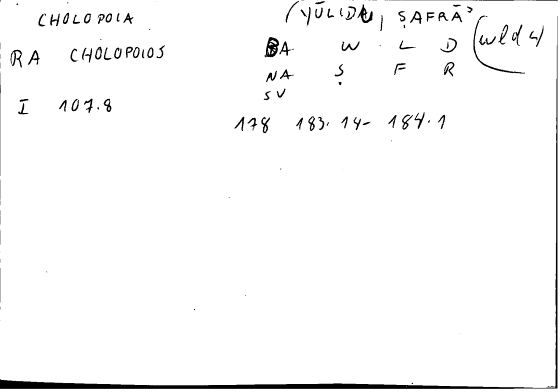 CHOLOPOIA
RA CHOLOPOIOS
I 107.8
(YŪLIDA, ṢAFRĀʾ
BA W L D (wld 4)
NA Ṣ F R
SV
178 183.14- 184.1